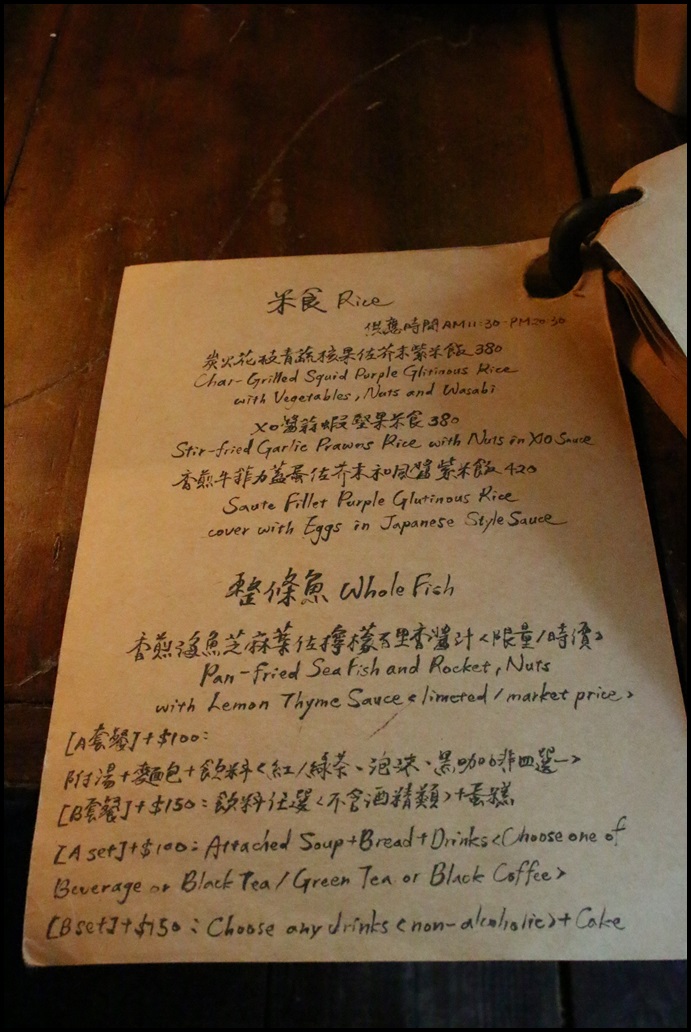 米食 Rice
供應時間AM11:30-PM20:30
炭火花枝青蔬核果佐芥末紫米飯 380
Char-Grilled Squid Purple Glitinous Rice
with Vegetables, Nuts and Wasabi
XO醬蒜蝦堅果米食 380
Stir-fried Garlic Prawns Rice with Nuts in XO Sauce
香煎牛菲力蓋蛋佐芥末和風醬紫米飯 420
Saute Fillet Purple Glutinous Rice
cover with Eggs in Japanese Style Sauce
整條魚 Whole Fish
香煎海魚芝麻葉佐檸檬百里香醬汁<限量/時價>
Pan-fried Sea Fish and Rocket, Nuts
with Lemon Thyme Sauce <limeted/market price>
[A套餐]+$100:
附湯+麵包+飲料<紅/綠茶、泡沫、黑咖啡四選一>
[B套餐]+$150:飲料任選<不含酒精類>+蛋糕
[A set]+$100: Attached Soup+Bread+Drinks<Choose one of
Beverage or Black Tea/Green Tea or Black Coffee>
[B set]+$150: Choose any drinks <non-alcoholic>+Cake